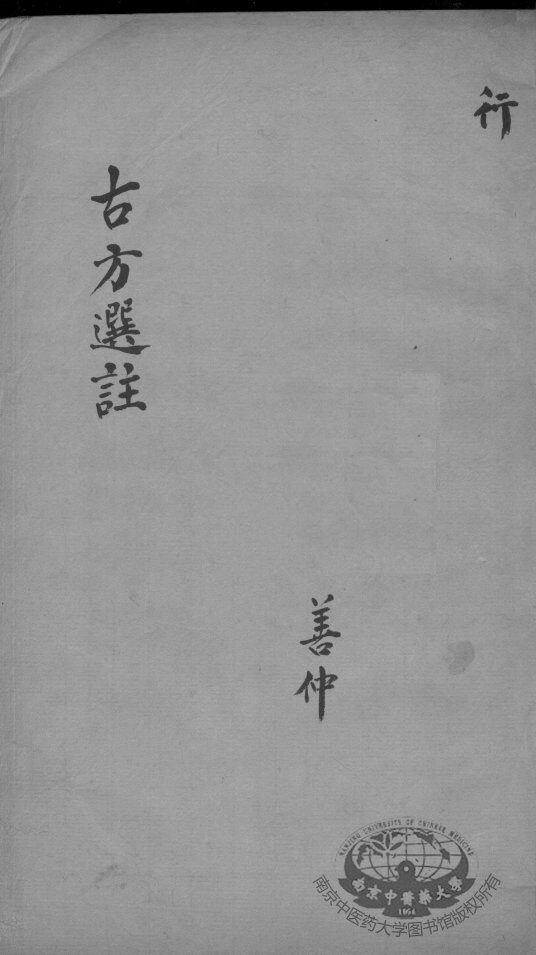 行
古方選註
善仲
NANJING UNIVERSITY OF CHINESE MEDICINE
南京中醫藥大學
1954
南京中医药大学图书馆版权所有